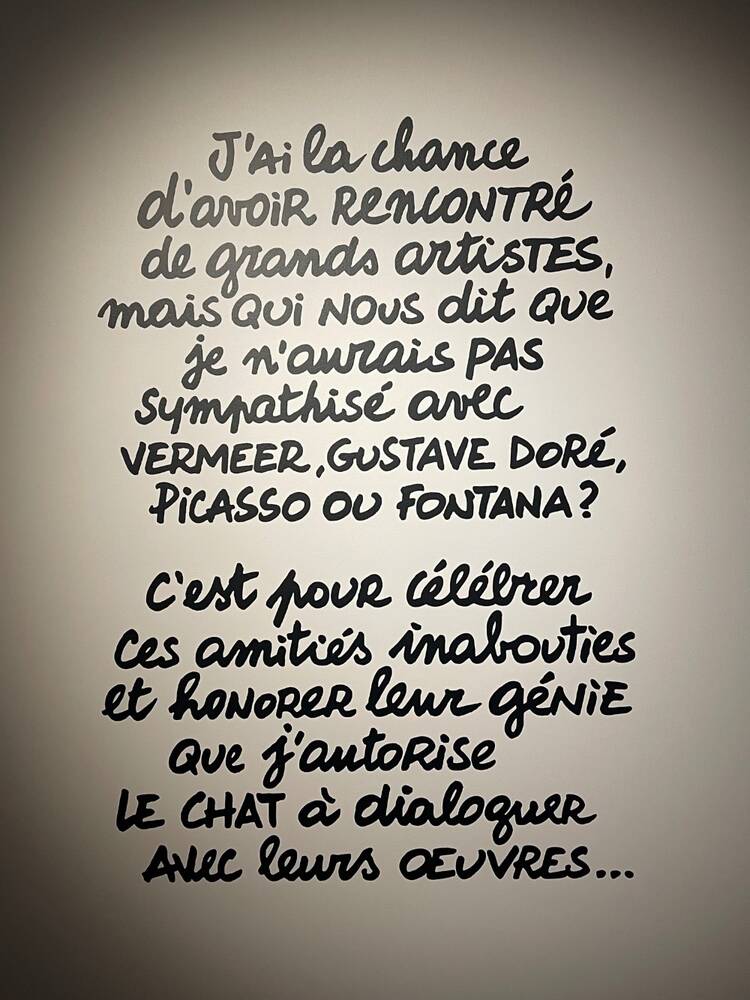 J'Ai la chance
d'avoiR RENCONTRÉ
de grands artiSTES,
mais QUi NOUS dit QUE
je n'aurais PAS
sympathisé avec
VERMEER, GUSTAVE DORÉ,
PiCASSO OU FONTANA?
C'est pour célébrer
ces amitiés inabouties
et HONORER leur GÉNiE
QUE j'autoRise
LE CHAT à dialoguer
AVEC leurs OEUVRES...